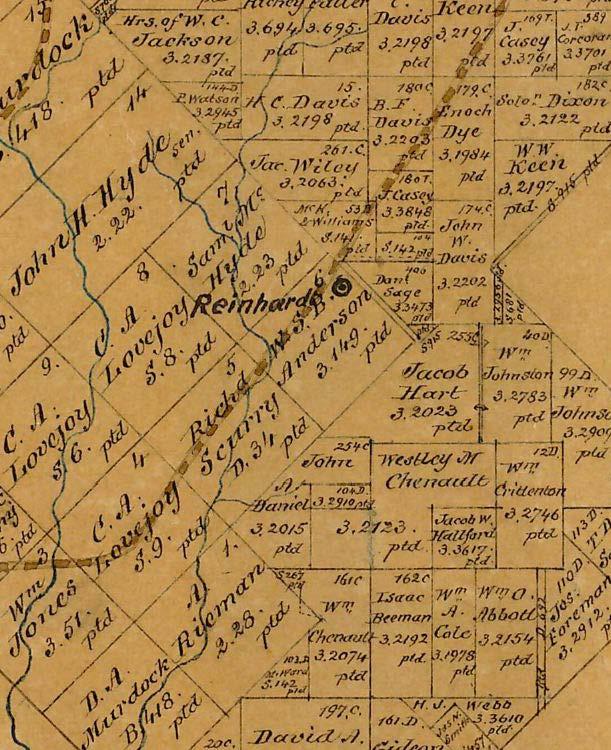 Hrs. of W. C.
Jackson
3.2187.
ptd
3.694
ptd
3.695.
ptd
Davis
3.2198
ptd
Keen
3.2197
ptd
J.
Casey
3.3761
ptd
15
Murdock
418.
ptd
144D
P. Watson
3.2945
ptd
15.
H. C. Davis
3.2198
ptd.
180C
B. F.
Davis
3.2203
ptd
179C
Enoch
Dye
3.1984
ptd
182C
Solon Dixon
3.2122
ptd.
14
John H. Hyde
sen.
2.22.
ptd
261.C
Jac. Wiley
3.2063.
ptd
W W.
Keen
3.2197.
ptd.
181.
J. Casey
3.3848
ptd.
McK. 53D
& Williams
S.142
ptd
174.C
John
W.
Davis
3.2202
ptd
7
Saml Mc
Hyde
2.23
ptd
406
Dant
Sage
3.3473
ptd
6
Reinhardt
W. S. B.
Anderson
3.149.
ptd
8
C. A.
Lovejoy
S. 8.
ptd
9.
C. A.
Lovejoy
S. 6.
ptd
5
Richd
Scurry
D. 34
ptd
253C
Jacob
Hart
3.2023
ptd
40D
Wm
Johnston
3.2783
ptd
99D.
Wm
3.2909
ptd
4
C. A.
Lovejoy
S. 9.
ptd
254C
John
A.
Daniel
3.2015
ptd
104D.
3.2910
ptd
Westley M
Chenault
3.2123.
ptd
12D
Wm
Crittenton
3.2746
ptd
Jacob W.
Hallford
3.3617.
ptd
3
Wm
Jones
3.51.
ptd
1.
A
Rieman
2.28.
ptd
S.267
ptd
161C
Wm
Chenault
3.2074
ptd
162C
Isaac
Beeman
3.2192
ptd
Wm
A.
Cole
3.1978
ptd
Wm O.
Abbott
3.2154
ptd
113 D.
110 D
Jos.
Foreman
3.2912
D. A.
Murdock
B 418.
ptd
103.D
M. Ward
S. 142
ptd
197.C.
David A.
161.D
Gideon
H. J. Webb
3.3610
ptd
Jas N.
Smith
20C.